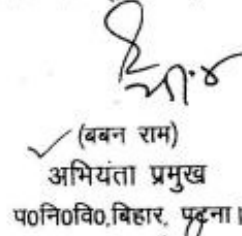 (बबन राम)
अभियंता प्रमुख
प०नि०वि०,बिहार, पटना।